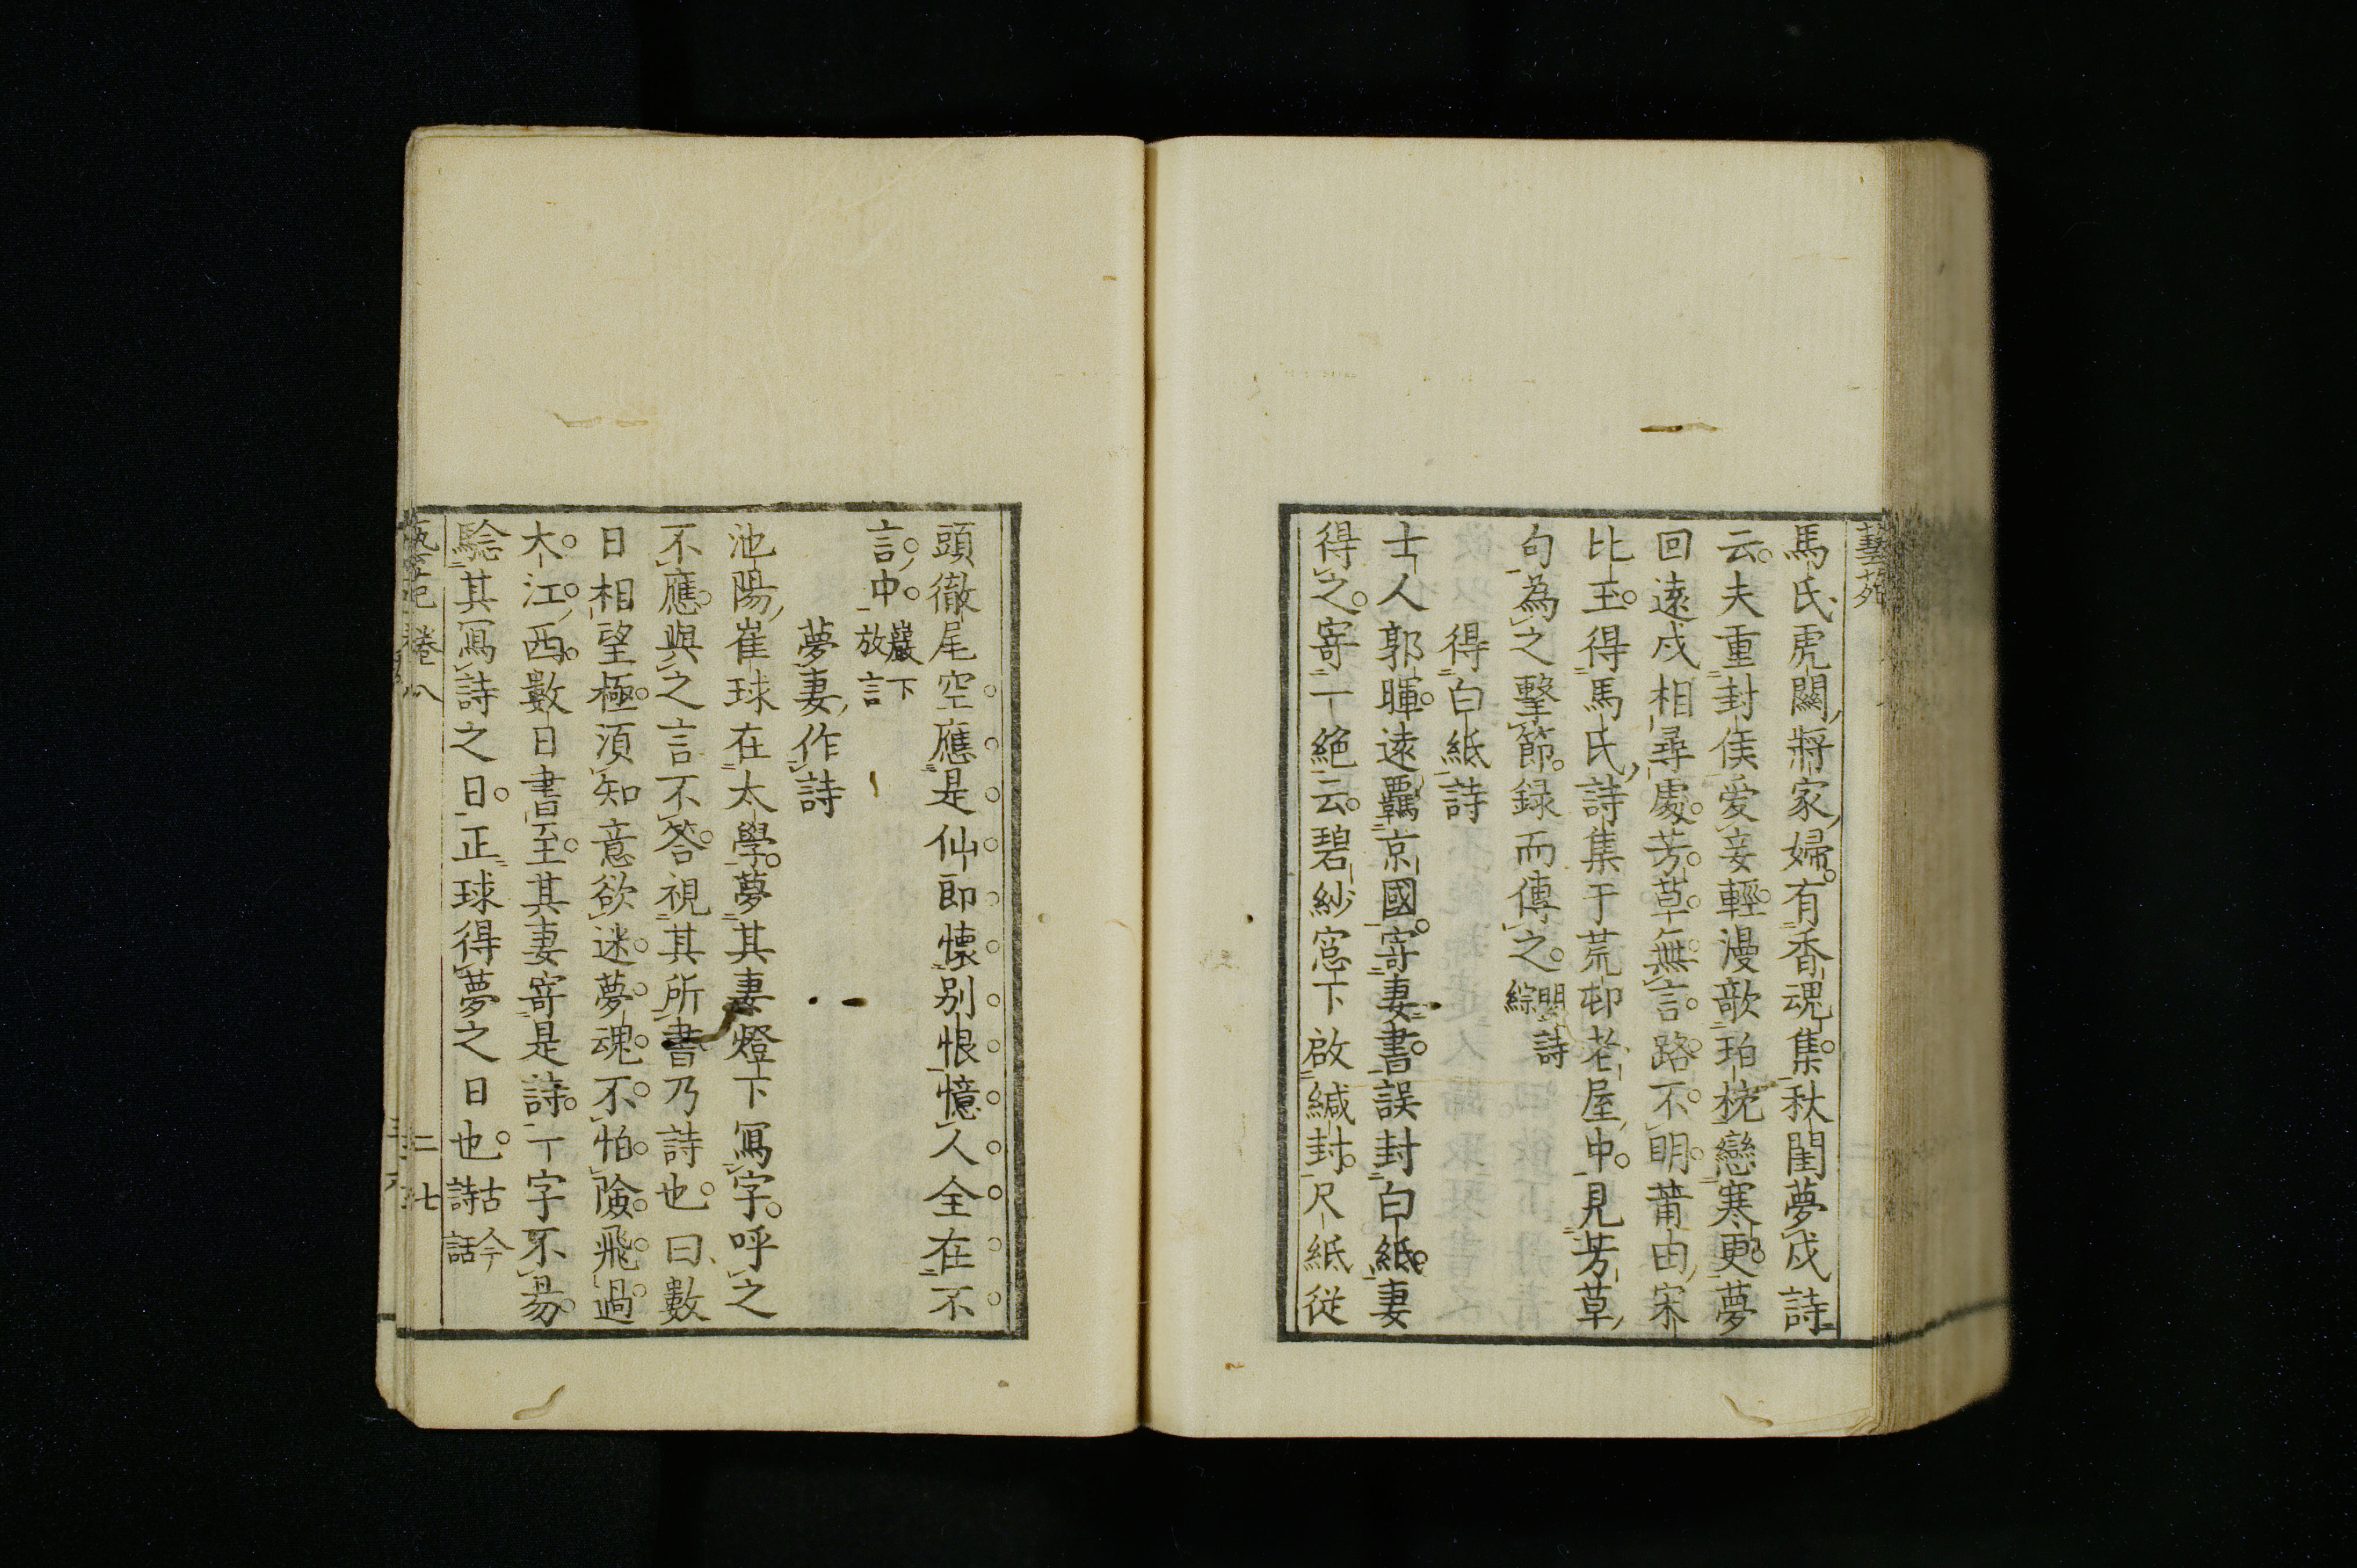 藝苑
馬氏虎關將家婦有香魂集秋閨夢戍詩
云夫重封侯愛妾輕漫歌珀枕戀寒更夢
回遠戍相尋處芳草無言路不明莆由宋
比玉得馬氏詩集于荒邨老屋中見芳草
句為之擊節録而傳之閨詩綜
得白紙詩
士人郭暉遠羈京國寄妻書誤封白紙妻
得之寄一絶云碧紗窓下啟緘封尺紙從
頭徹尾空應是仙郎懷別恨憶人全在不
言中巖下放言
夢妻作詩
池陽崔球在太學夢其妻燈下寫字呼之
不應與之言不答視其所書乃詩也曰數
日相望極湏知意欲迷夢魂不怕險飛過
大江西數日書至其妻寄是詩一字不易
騐其寫詩之日正球得夢之日也古今詩話
藝苑 卷八 二七